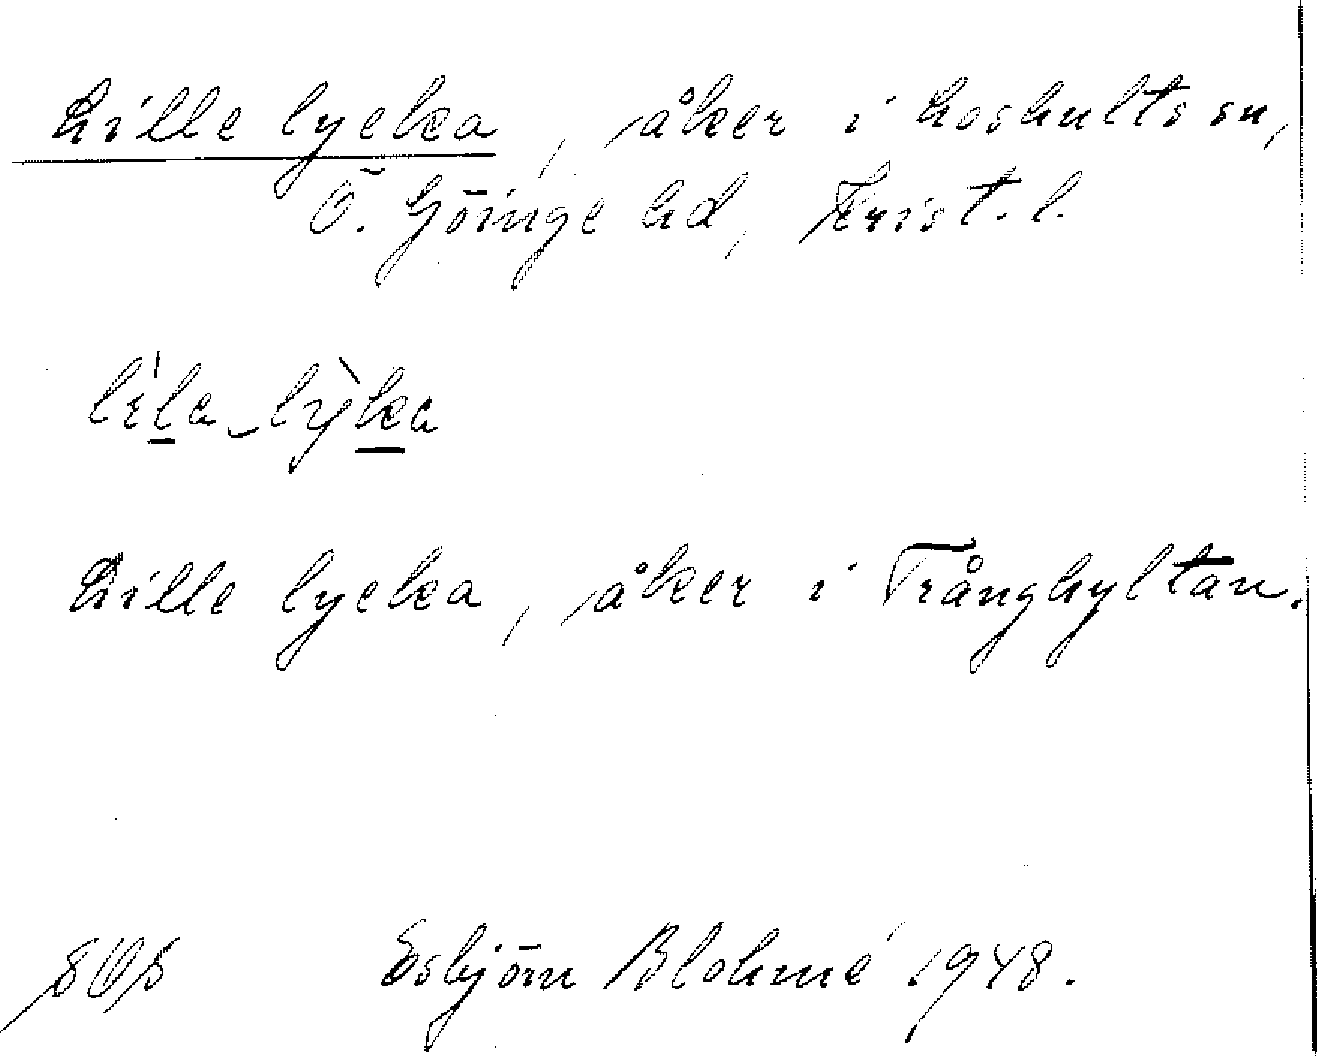 Lille lycka, åker i Loshults sn,
Ö. Göinge hd, Krist. l.
lila-lỳka
Lille lycka, åker i Trånghyltan.
Esbjörn Blohmé 1948.